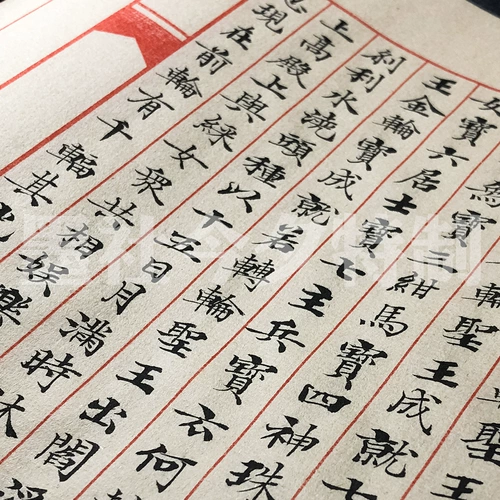 輪聖王成就七
寶三紺馬寶四神珠
寶六居士寶七主兵寶云何
王金輪寶成就若轉輪聖王出閻
剎利水澆頭種以十五日月滿時沐
上高殿上與綵女眾共相娛樂
忽現在前輪有千輻其光
墨社今夕特制